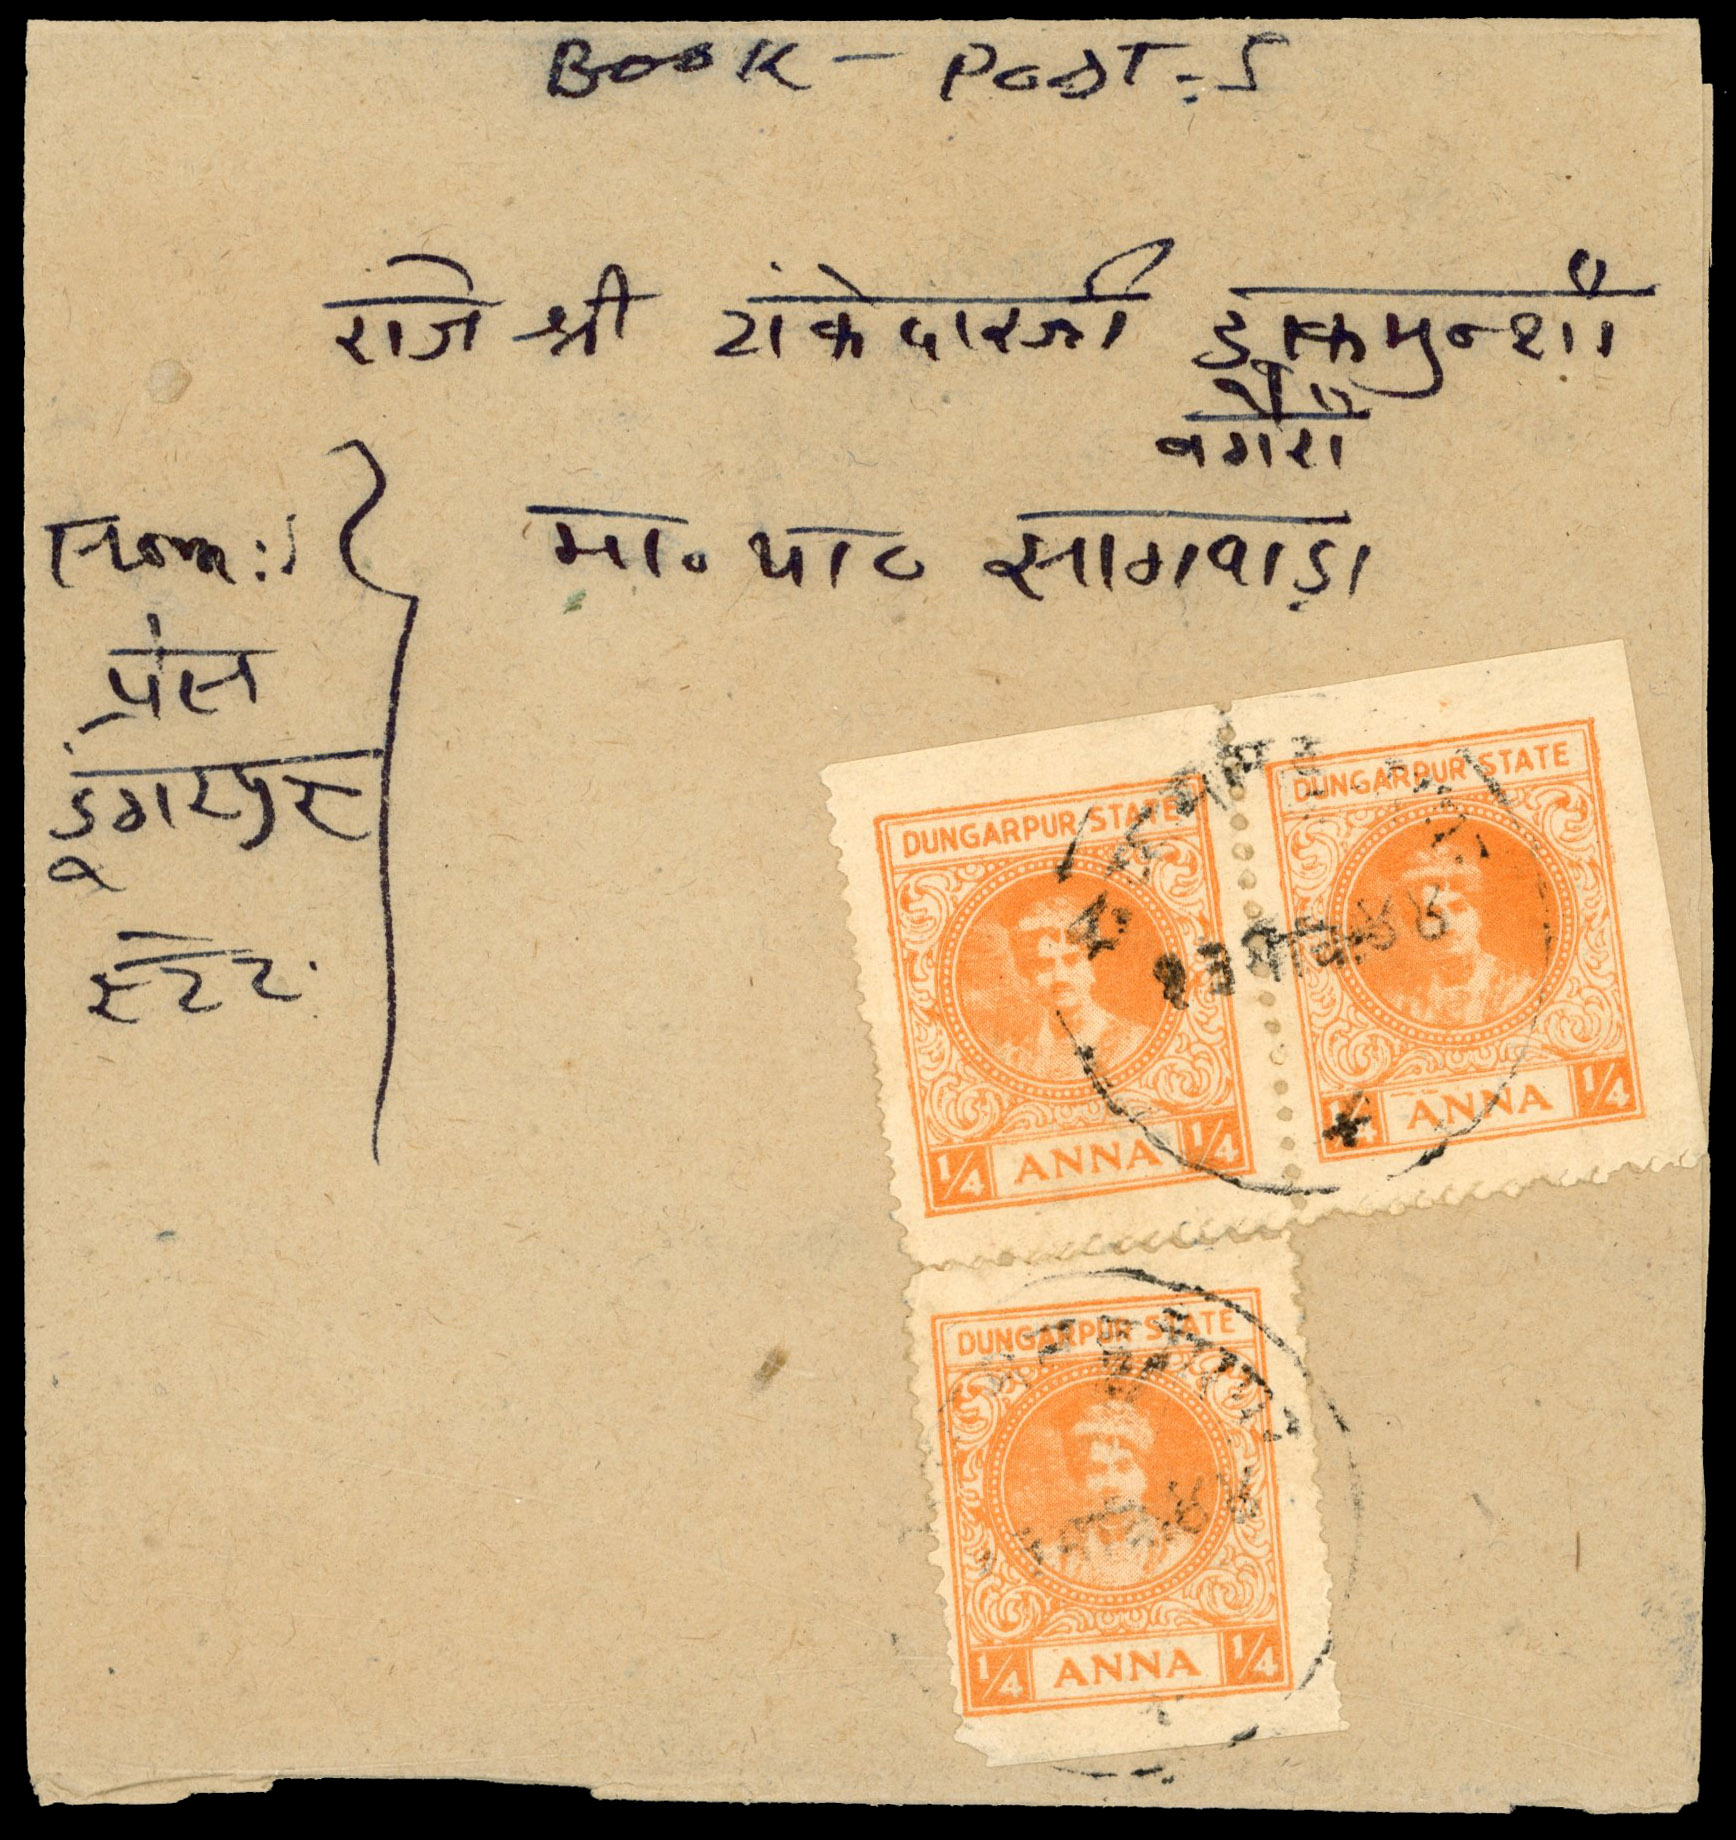 BOOK - POST :-
राजे श्री टांकेदारजी डाकमुन्शी
वगैरा
From :-
मा० पा० सागवाड़ा
प्रेस
डूंगरपुर
स्टेट
DUNGARPUR STATE
DUNGARPUR STATE
1/4 ANNA 1/4
1/4 ANNA 1/4
DUNGARPUR STATE
1/4 ANNA 1/4